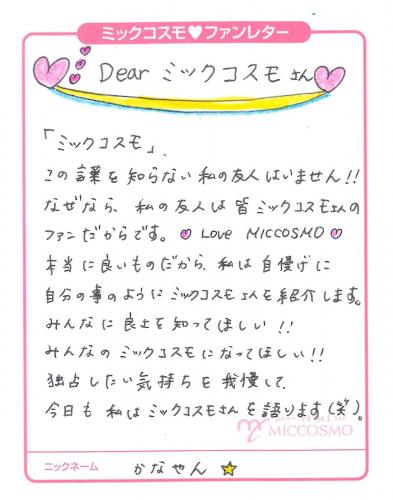 ミックコスモ♥ファンレター
Dear ミックコスモさん
「ミックコスモ」、
この言葉を知らない私の友人はいません!!
なぜなら、私の友人は皆ミックコスモさんの
ファンだからです。♥ Love MICCOSMO ♥
本当に良いものだから、私は自慢げに
自分の事のようにミックコスモさんを紹介します。
みんなに良さを知ってほしい!!
みんなのミックコスモになってほしい!!
独占したい気持ちを我慢して
今日も私はミックコスモさんを語ります(笑)。
MICCOSMO
ニックネーム かなやん☆